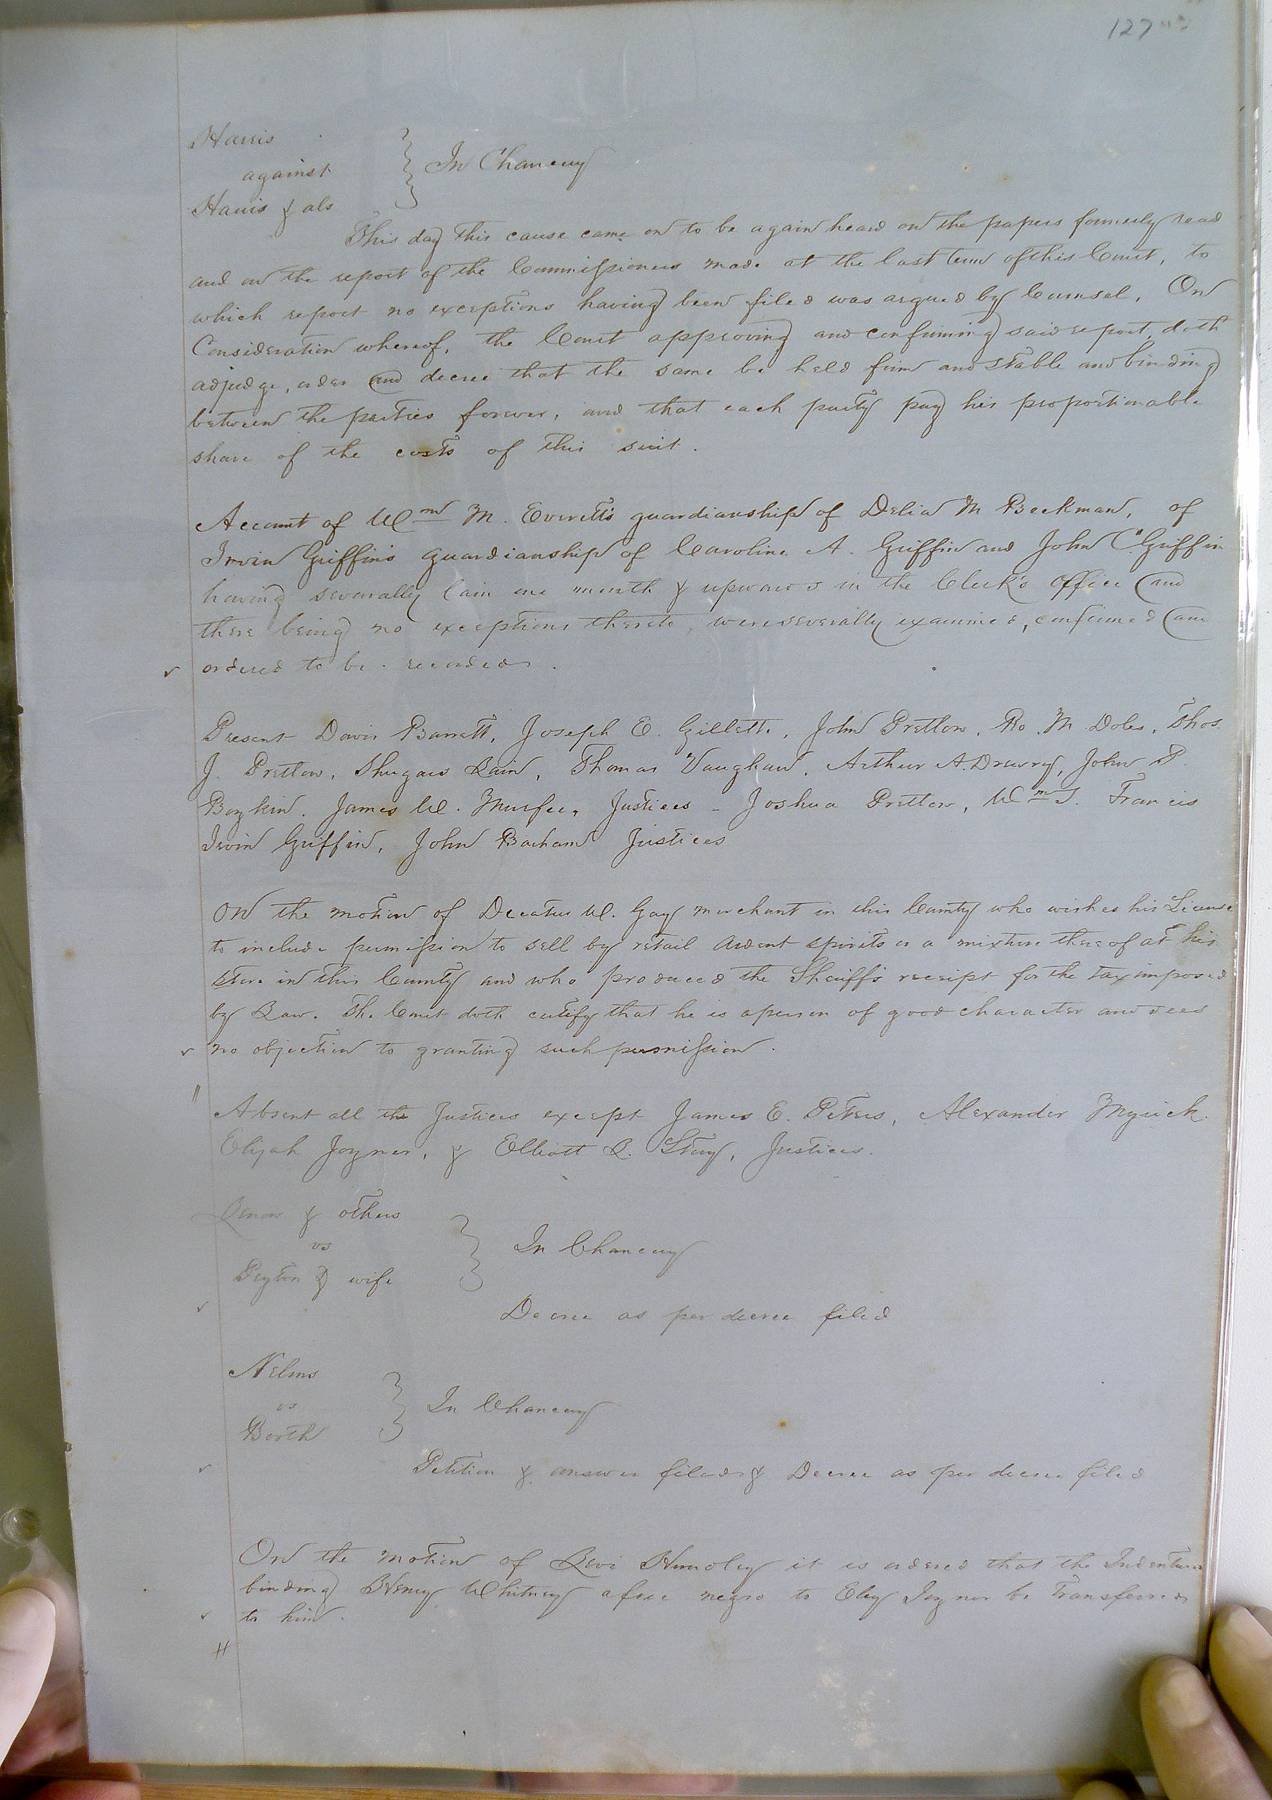 127
Harris
against
Harris & als
In Chancery
This day this cause came on to be again heard on the papers formerly read
and on the report of the Commissioners made at the last term of this Court, to
which report no exceptions having been filed was argued by Counsel. On
Consideration whereof, the Court approving and confirming said report, doth
adjudge, order and decree that the same be held firm and stable and binding
between the parties forever, and that each party pay his proportionable
share of the costs of this suit.
Account of Wm M. Everett's guardianship of Delia M Beckman, of
Irvin Griffin's guardianship of Caroline A. Griffin and John C Griffin
having severally lain one month & upwards in the Clerk's office and
there being no exceptions thereto, were severally examined, confirmed and
ordered to be recorded.
Present Davis Barrett, Joseph E. Gillette, John Pretlow, Ro. M Doles, Thos.
J. Pretlow, Shugars Lain, Thomas Vaughan, Arthur A. Drewry, John P.
Boykin, James W. Murfee, Justices - Joshua Pretlow, Wm T. Francis
Irvin Griffin, John Barham Justices
On the motion of Decatur W. Gay merchant in this County who wishes his License
to include permission to sell by retail Ardent spirits or a mixture thereof at his
store in this County and who produced the Sheriff's receipt for the tax imposed
by Law. The Court doth certify that he is a person of good character and sees
no objection to granting such permission.
Absent all the Justices except James E. Peters, Alexander Myrick
Elijah Joyner, & Elliott L. Story, Justices.
& others
vs
Peyton & wife
In Chancery
Decree as per decree filed
Nelms
vs
Borth
In Chancery
Petition & answer filed & Decree as per decree filed
On the motion of Levi Humdley it is ordered that the Indenture
binding Henry Whitney a free negro to Eley Joyner be Transferred
to him.